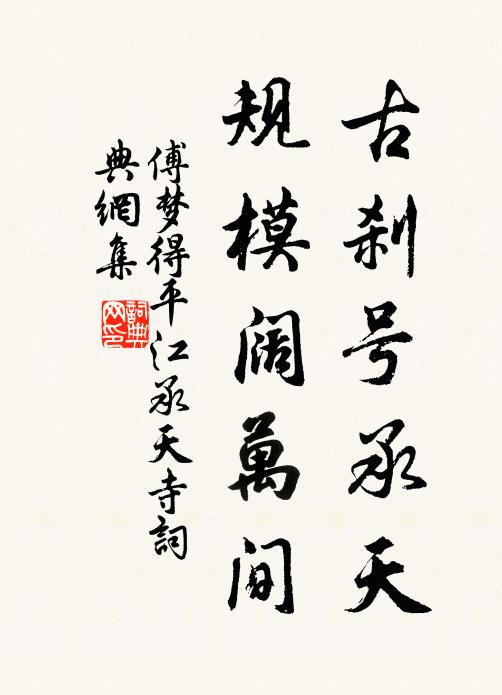 古刹号承天
规模阔萬间
傅梦得平江承天寺詞
典網集
詞典网印